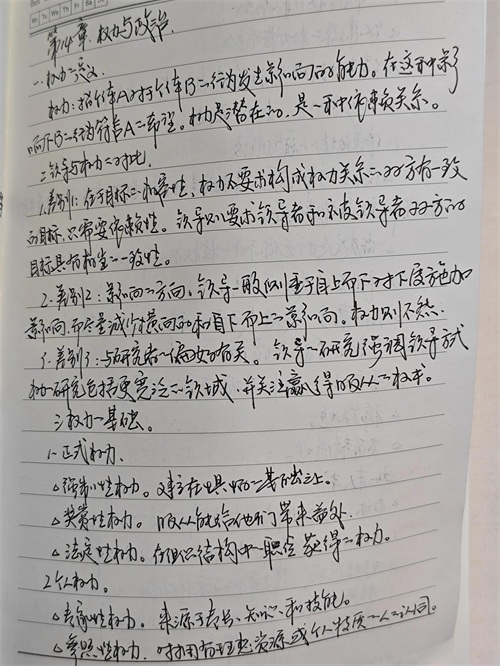 第14章. 权力与政治.
一. 权力定义
权力: 指个体A对于个体B的行为发生影响的能力。在这种影
响下B的行为符合A的希望。权力是潜在的, 是一种依赖关系。
二. 领导与权力的对比.
1. 差别1: 在于目标的相容性, 权力不要求构成权力关系的双方有一致
的目标, 只需要依赖性。领导则要求领导者和被领导者双方的
目标具有相当的一致性。
2. 差别2: 影响的方向. 领导一般侧重于自上而下对下属施加
影响, 而尽量减少横向的和自下而上的影响。权力则不然.
3. 差别3: 与研究者的偏好有关。领导的研究强调领导方式
权力研究包括更宽泛的领域. 并关注赢得服从的权术。
三. 权力的基础。
1. 正式权力.
△强制性权力。建立在惧怕的基础之上.
△奖赏性权力。服从能给他们带来益处.
△法定性权力. 在组织结构中的职位获得的权力。
2. 个人权力.
△专家性权力。来源于专长、知识和技能。
△参照性权力. 对拥有理想资源或个人特质的人的认同。